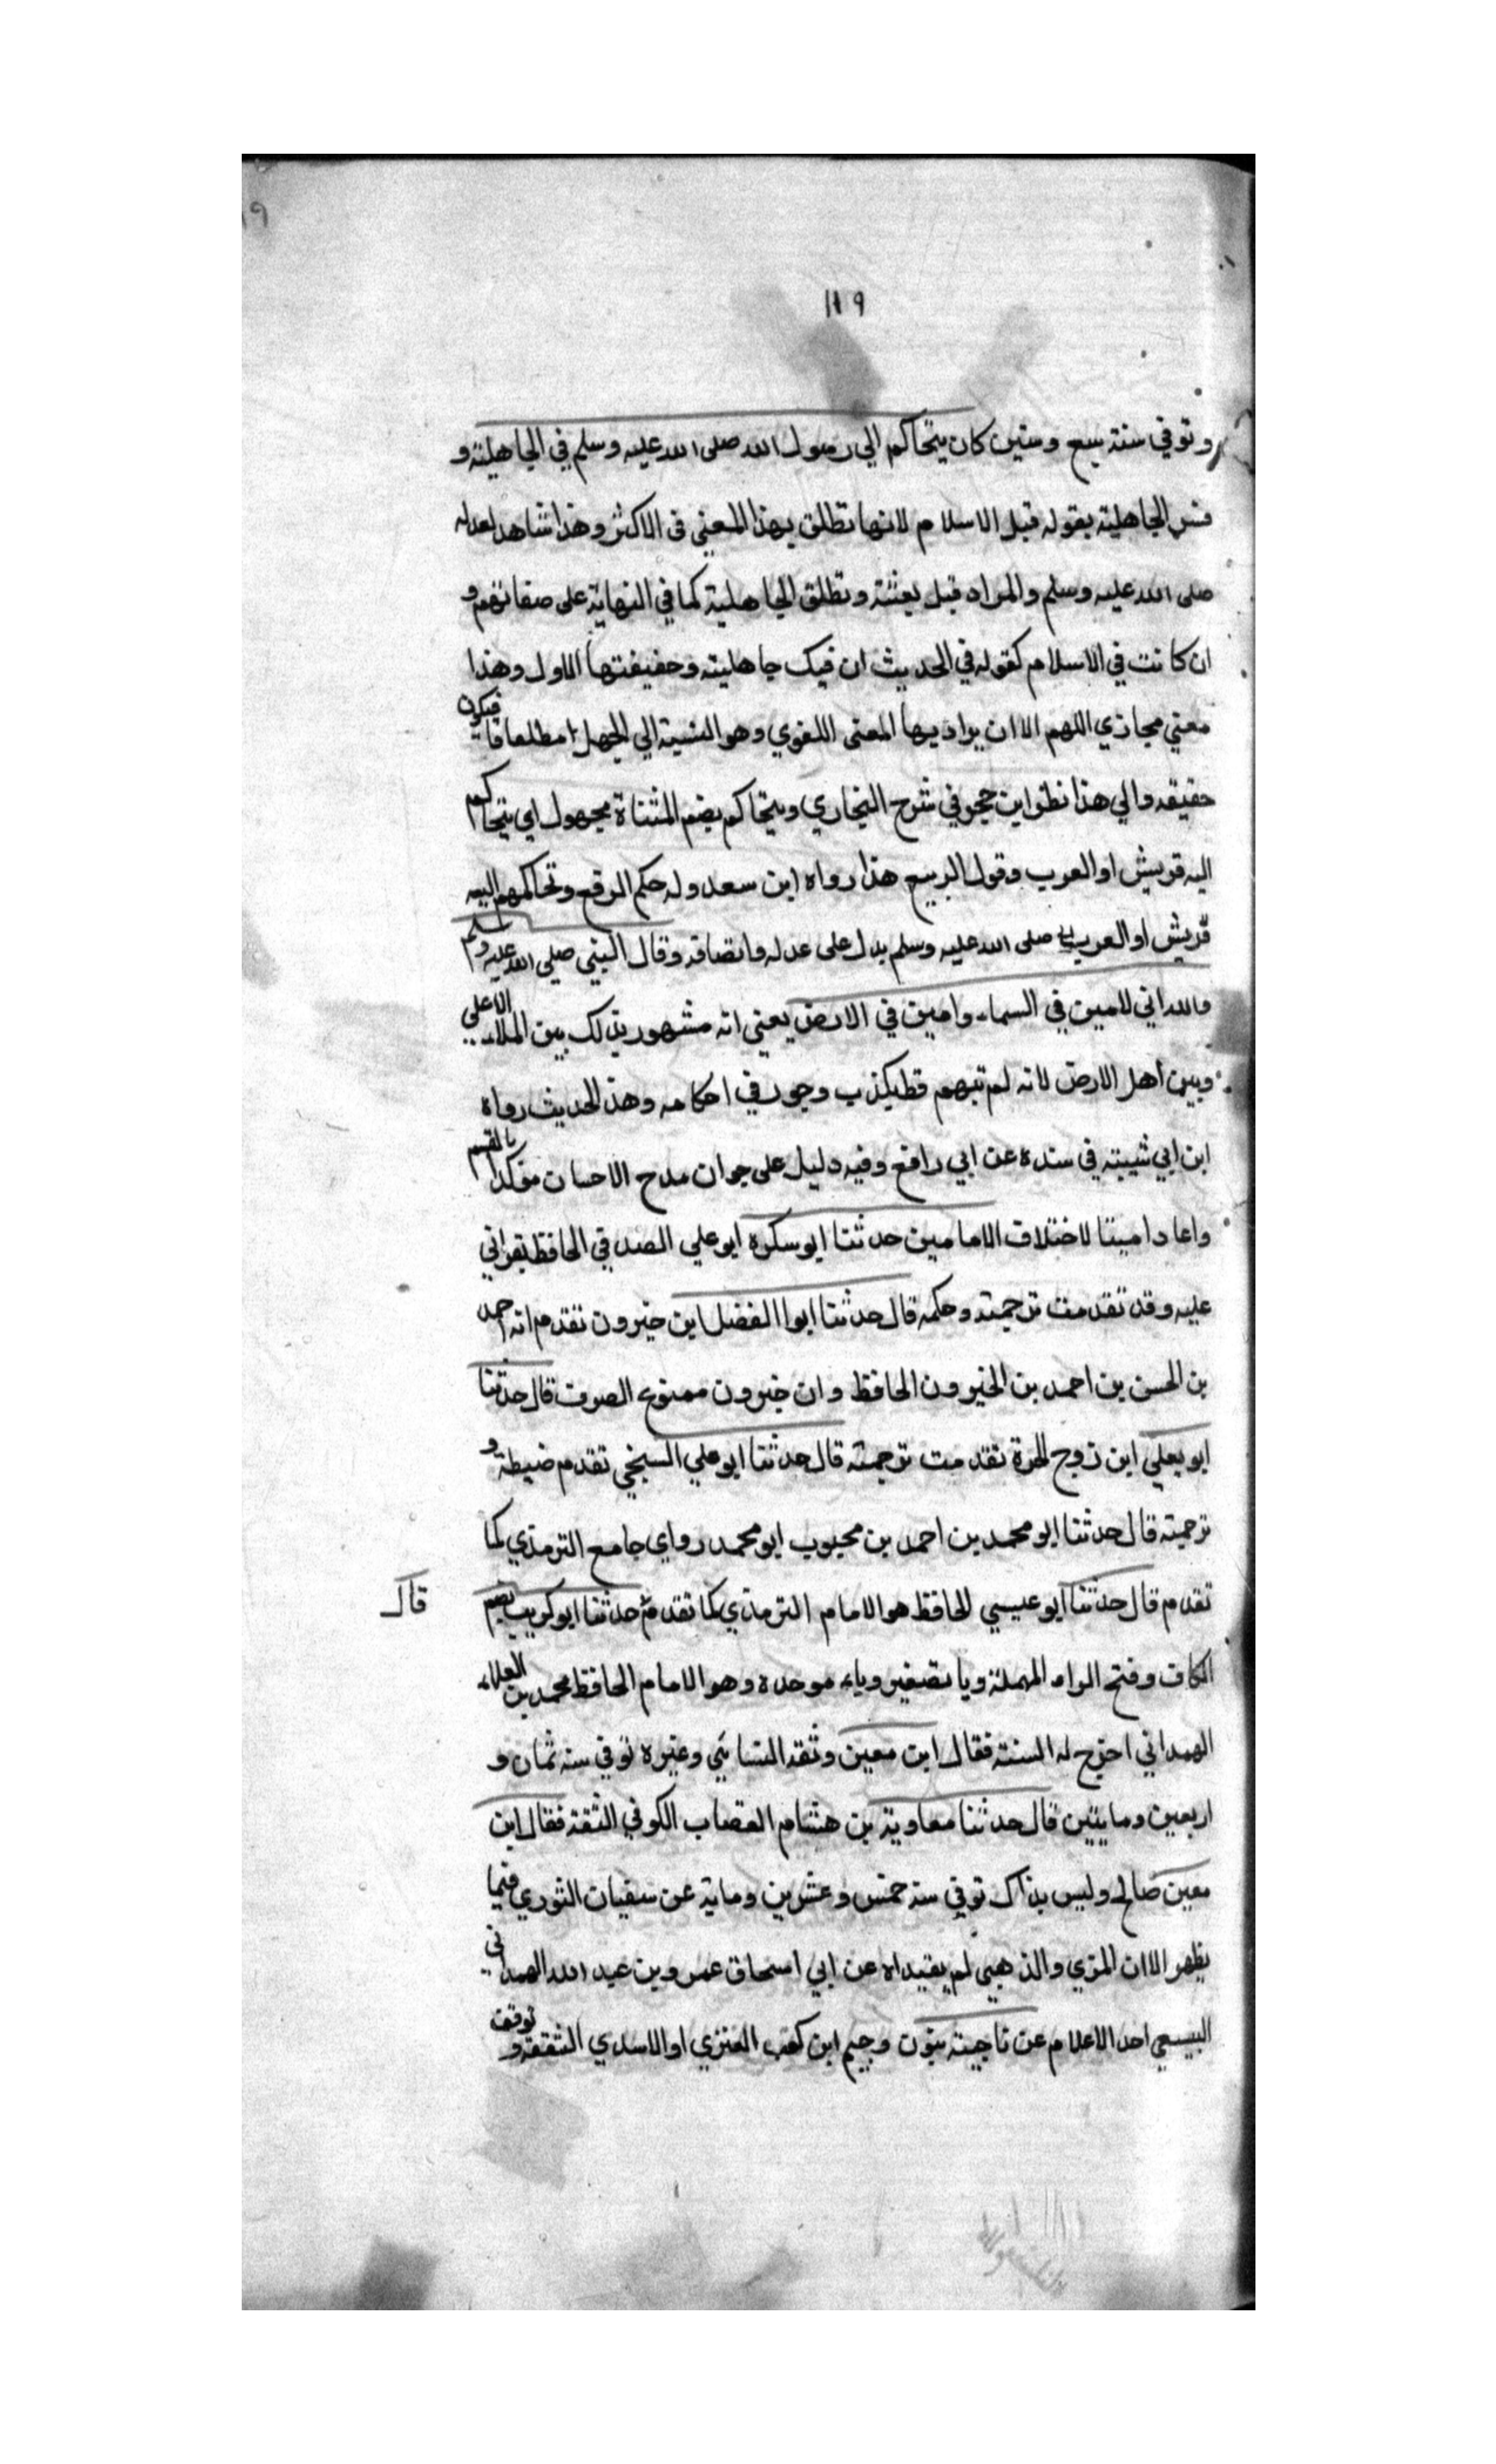 ١١٩
وتوفي سنة سبع وستين كان يتحاكم الي رسول الله صلى الله عليه وسلم في الجاهلية و
فسر الجاهلية بقوله قبل الاسلام لانها تطلق بهذا المعني فى الاكثر وهذا شاهد لعدله
صلى الله عليه وسلم والمراد قبل بعثته وتطلق الجاهلية كما في النهاية على صفاتهم و
ان كانت في الاسلام كقوله في الحديث ان فيك جاهلية وحقيقتها الاول وهذا
معني مجازي اللهم الا ان يراد بها المعنى اللغوي وهو النسبة الي الجهل مطلقا فيكون
حقيقه والي هذا نظر ابن حجر في شرح البخاري ويتحاكم بضم المثناة مجهول اي يتحاكم
اليه قريش او العرب وقول الربيع هذا رواه ابن سعد وله حكم الرفع وتحاكمهم اليه
قريش او العرب صلى الله عليه وسلم يدل على عدله وانصافه وقال النبي صلي الله عليه وسلم
والله اني لامين في السماء وامين في الارض يعني انه مشهور بذلك بين الملاء الاعلي
وبين اهل الارض لانه لم تبهم قط بكذب وجور في احكامه وهذ الحديث رواه
ابن ابي شيبته في سنده عن ابي رافع وفيه دليل على جوان مدح الاحسان موكدا بالقسم
واعاد امينا لاختلاف الامامين حدثنا ابو سكره ابو علي الصدقي الحافظ بقراني
عليه وقد تقدمت ترجمته وحكمه قال حدثنا ابوا الفضل ابن خيرون تقدم انه احمد
بن الحسن بن احمد بن الخيرون الحافظ وان خيرون ممنوع الصرف قال حدثنا
ابو يعلي ابن زوج الحرة تقدمت ترجمته قال حدثنا ابو علي السبخي تقدم ضبطه و
ترجمته قال حدثنا ابو محمد بن احمد بن محبوب ابو محمد رواي جامع الترمذي كما
تقدم قال حدثنا ابو عيسي الحافظ هو الامام الترمذي كما تقدم حدثنا ابو كريب بضم
قال
الكاف وفتح الراء المهملة ويا تصغير وباء موحده وهو الامام الحافظ محمد بن العلاء
الهمداني اخرج له الستة فقال ابن معين وثقه النسائي وغيره توفي سنه ثمان و
اربعين ومايتين قال حدثنا معاوية بن هشام القصاب الكوفي الثقة فقال ابن
معين صالح وليس بذاك توفي سنه خمس وعشرين وماية عن سفيان الثوري فيما
يظهر الاان المزي والذهبي لم يقيداه عن ابي اسحاق عمر وبن عبد الله الهمداني
البيسعي احد الاعلام عن ناجيته بنون وجيم ابن كعب العنزي او الاسدي الثقة و توقف